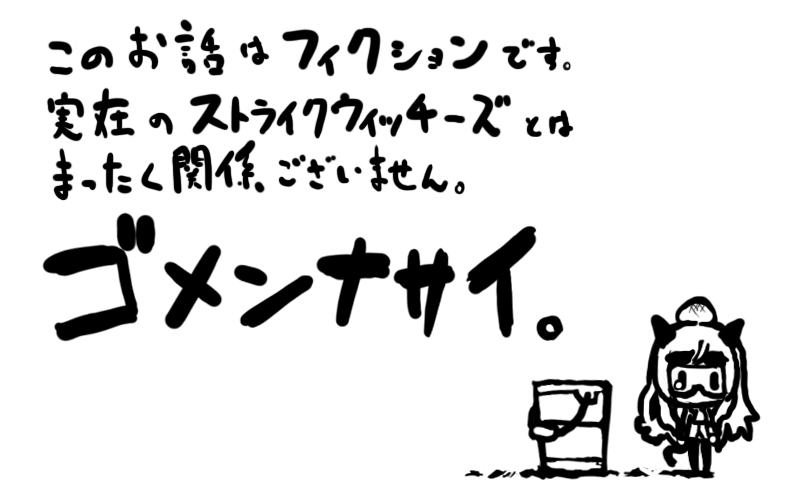 このお話はフィクションです。
実在のストライクウィッチーズとは
まったく関係、ございません。
ゴメンナサイ。